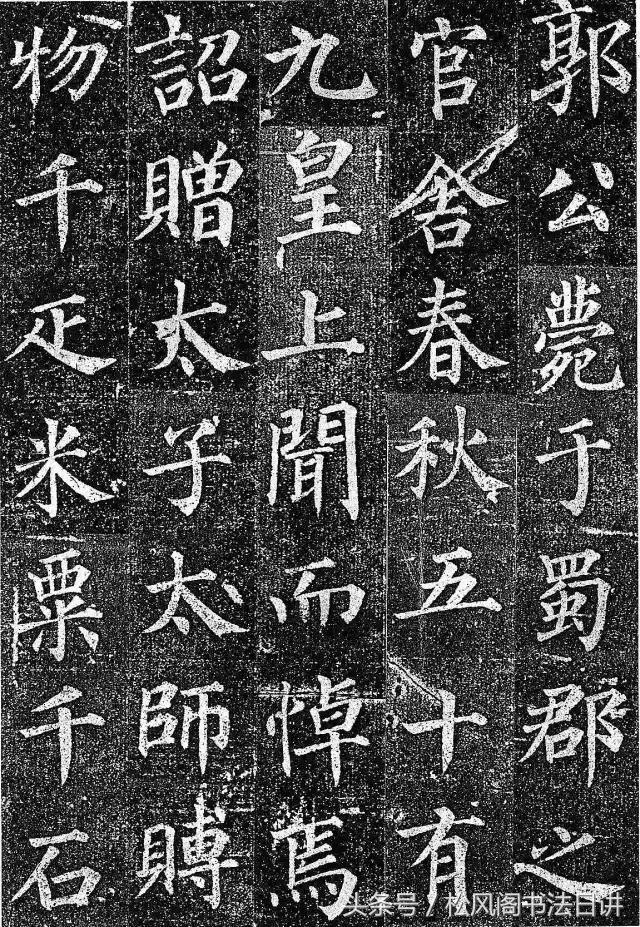 郭公薨于蜀郡之
官舍春秋五十有
九皇上聞而悼焉
詔贈太子太師賻
物千疋米粟千石
头条号 / 松风阁书法日讲